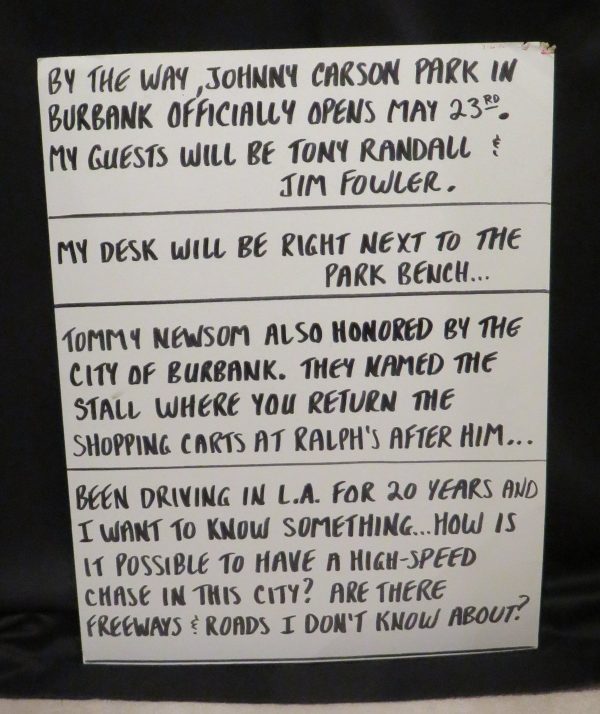 BY THE WAY, JOHNNY CARSON PARK IN
BURBANK OFFICIALLY OPENS MAY 23RD.
MY GUESTS WILL BE TONY RANDALL &
JIM FOWLER.
MY DESK WILL BE RIGHT NEXT TO THE
PARK BENCH...
TOMMY NEWSOM ALSO HONORED BY THE
CITY OF BURBANK. THEY NAMED THE
STALL WHERE YOU RETURN THE
SHOPPING CARTS AT RALPH'S AFTER HIM...
BEEN DRIVING IN L.A. FOR 20 YEARS AND
I WANT TO KNOW SOMETHING...HOW IS
IT POSSIBLE TO HAVE A HIGH-SPEED
CHASE IN THIS CITY? ARE THERE
FREEWAYS & ROADS I DON'T KNOW ABOUT?